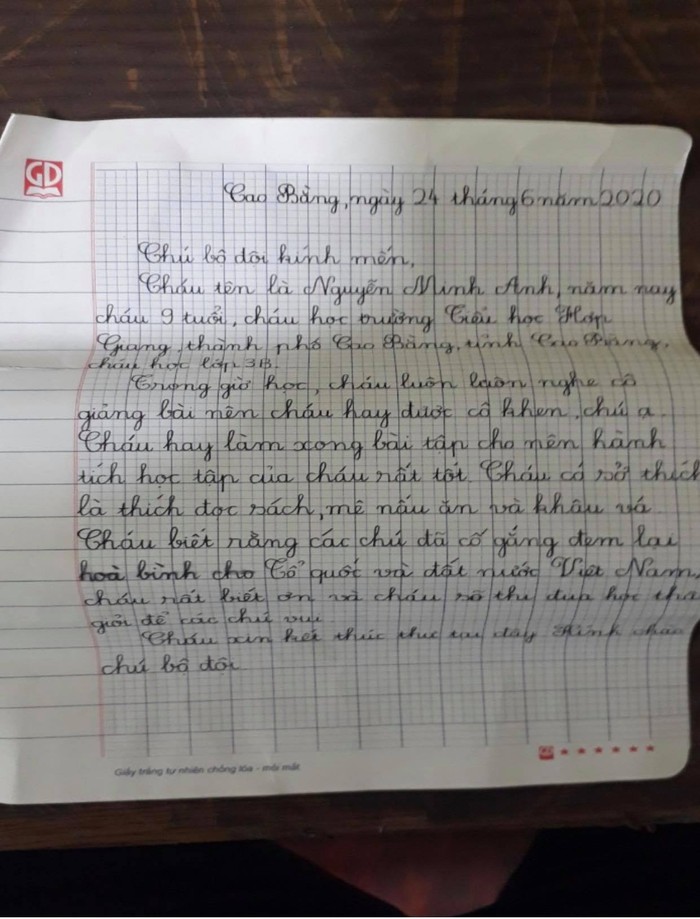 GD
Cao Bằng, ngày 24 tháng 6 năm 2020
Chú bộ đội kính mến,
Cháu tên là Nguyễn Minh Anh, năm nay
cháu 9 tuổi, cháu học trường Tiểu học Hợp
Giang, thành phố Cao Bằng, tỉnh Cao Bằng,
cháu học lớp 3B.
Trong giờ học, cháu luôn luôn nghe cô
giảng bài nên cháu hay được cô khen, chú ạ.
Cháu hay làm xong bài tập cho nên hành
tích học tập của cháu rất tốt. Cháu có sở thích
là thích đọc sách, mê nấu ăn và khâu vá.
Cháu biết rằng các chú đã cố gắng đem lại
hoà bình cho Tổ quốc và đất nước Việt Nam,
cháu rất biết ơn và cháu sẽ thi đua học thật
giỏi để các chú vui.
Cháu xin kết thúc thư tại đây. Kính chào
chú bộ đội.
GD
Giấy trắng tự nhiên chống lóa - mỏi mắt